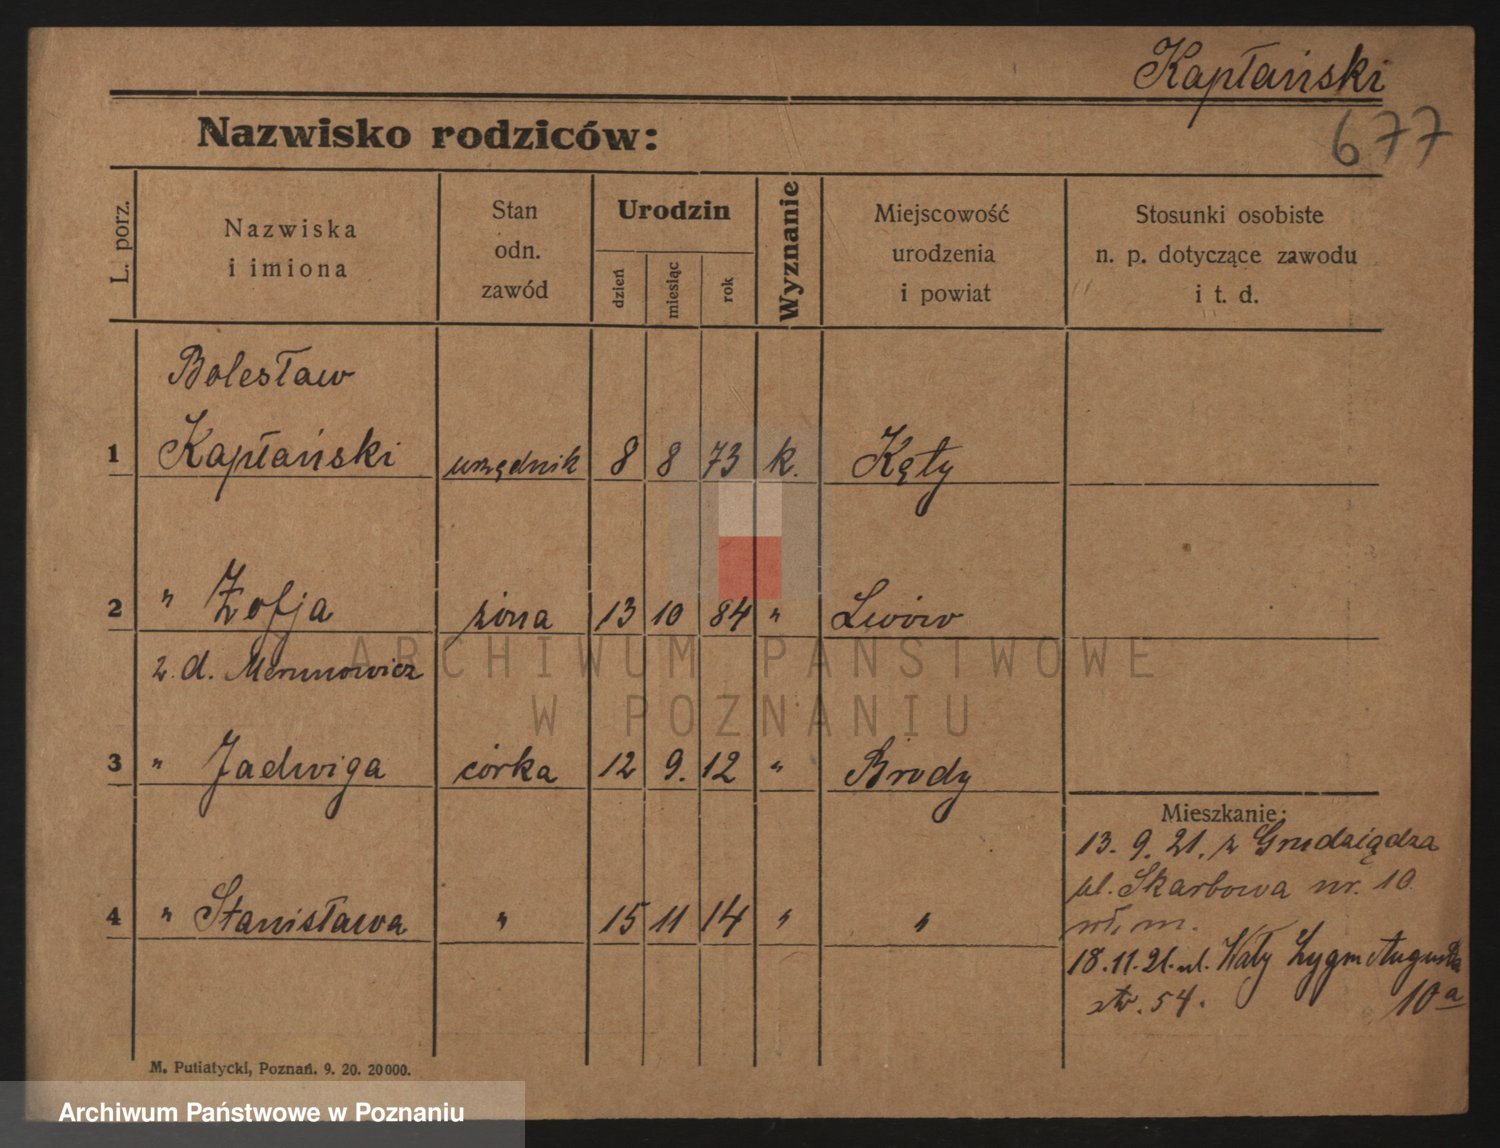 Kapłański
677
Nazwisko rodziców:
L. porz.
Nazwiska
i imiona
Stan
odn.
zawód
Urodzin
dzień
miesiąc
rok
Wyznanie
Miejscowość
urodzenia
i powiat
Stosunki osobiste
n. p. dotyczące zawodu
i t. d.
Bolesław
1 Kapłański urzędnik 8 8 73 k. Kęty
2 " Zofja żona 13 10 84 " Lwów
z d. Merunowicz
3 " Jadwiga córka 12 9. 12 " Brody
4 " Stanisława " 15 11 14 " "
Mieszkanie:
13. 9. 21. z Grudziądza
ul. Skarbowa nr. 10
wł. m.
18. 11. 21. ul. Wały Zygm Augusta
str. 54. 10a
M. Putiatycki, Poznań. 9. 20. 20000.
ARCHIWUM PAŃSTWOWE
W POZNANIU
Archiwum Państwowe w Poznaniu